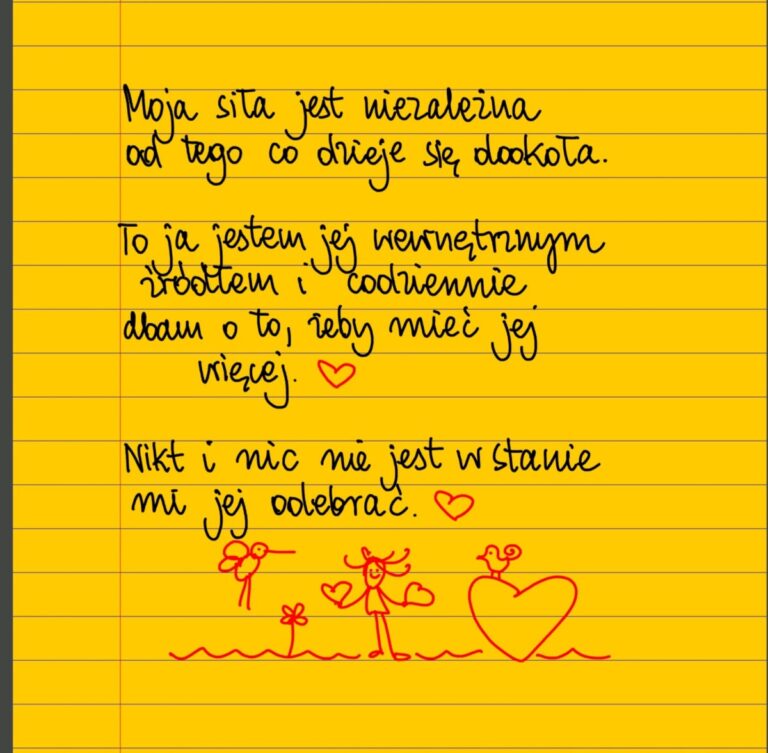 Moja siła jest niezależna
od tego co dzieje się dookoła.
To ja jestem jej wewnętrznym
źródłem i codziennie
dbam o to, żeby mieć jej
więcej.
Nikt i nic nie jest w stanie
mi jej odebrać.